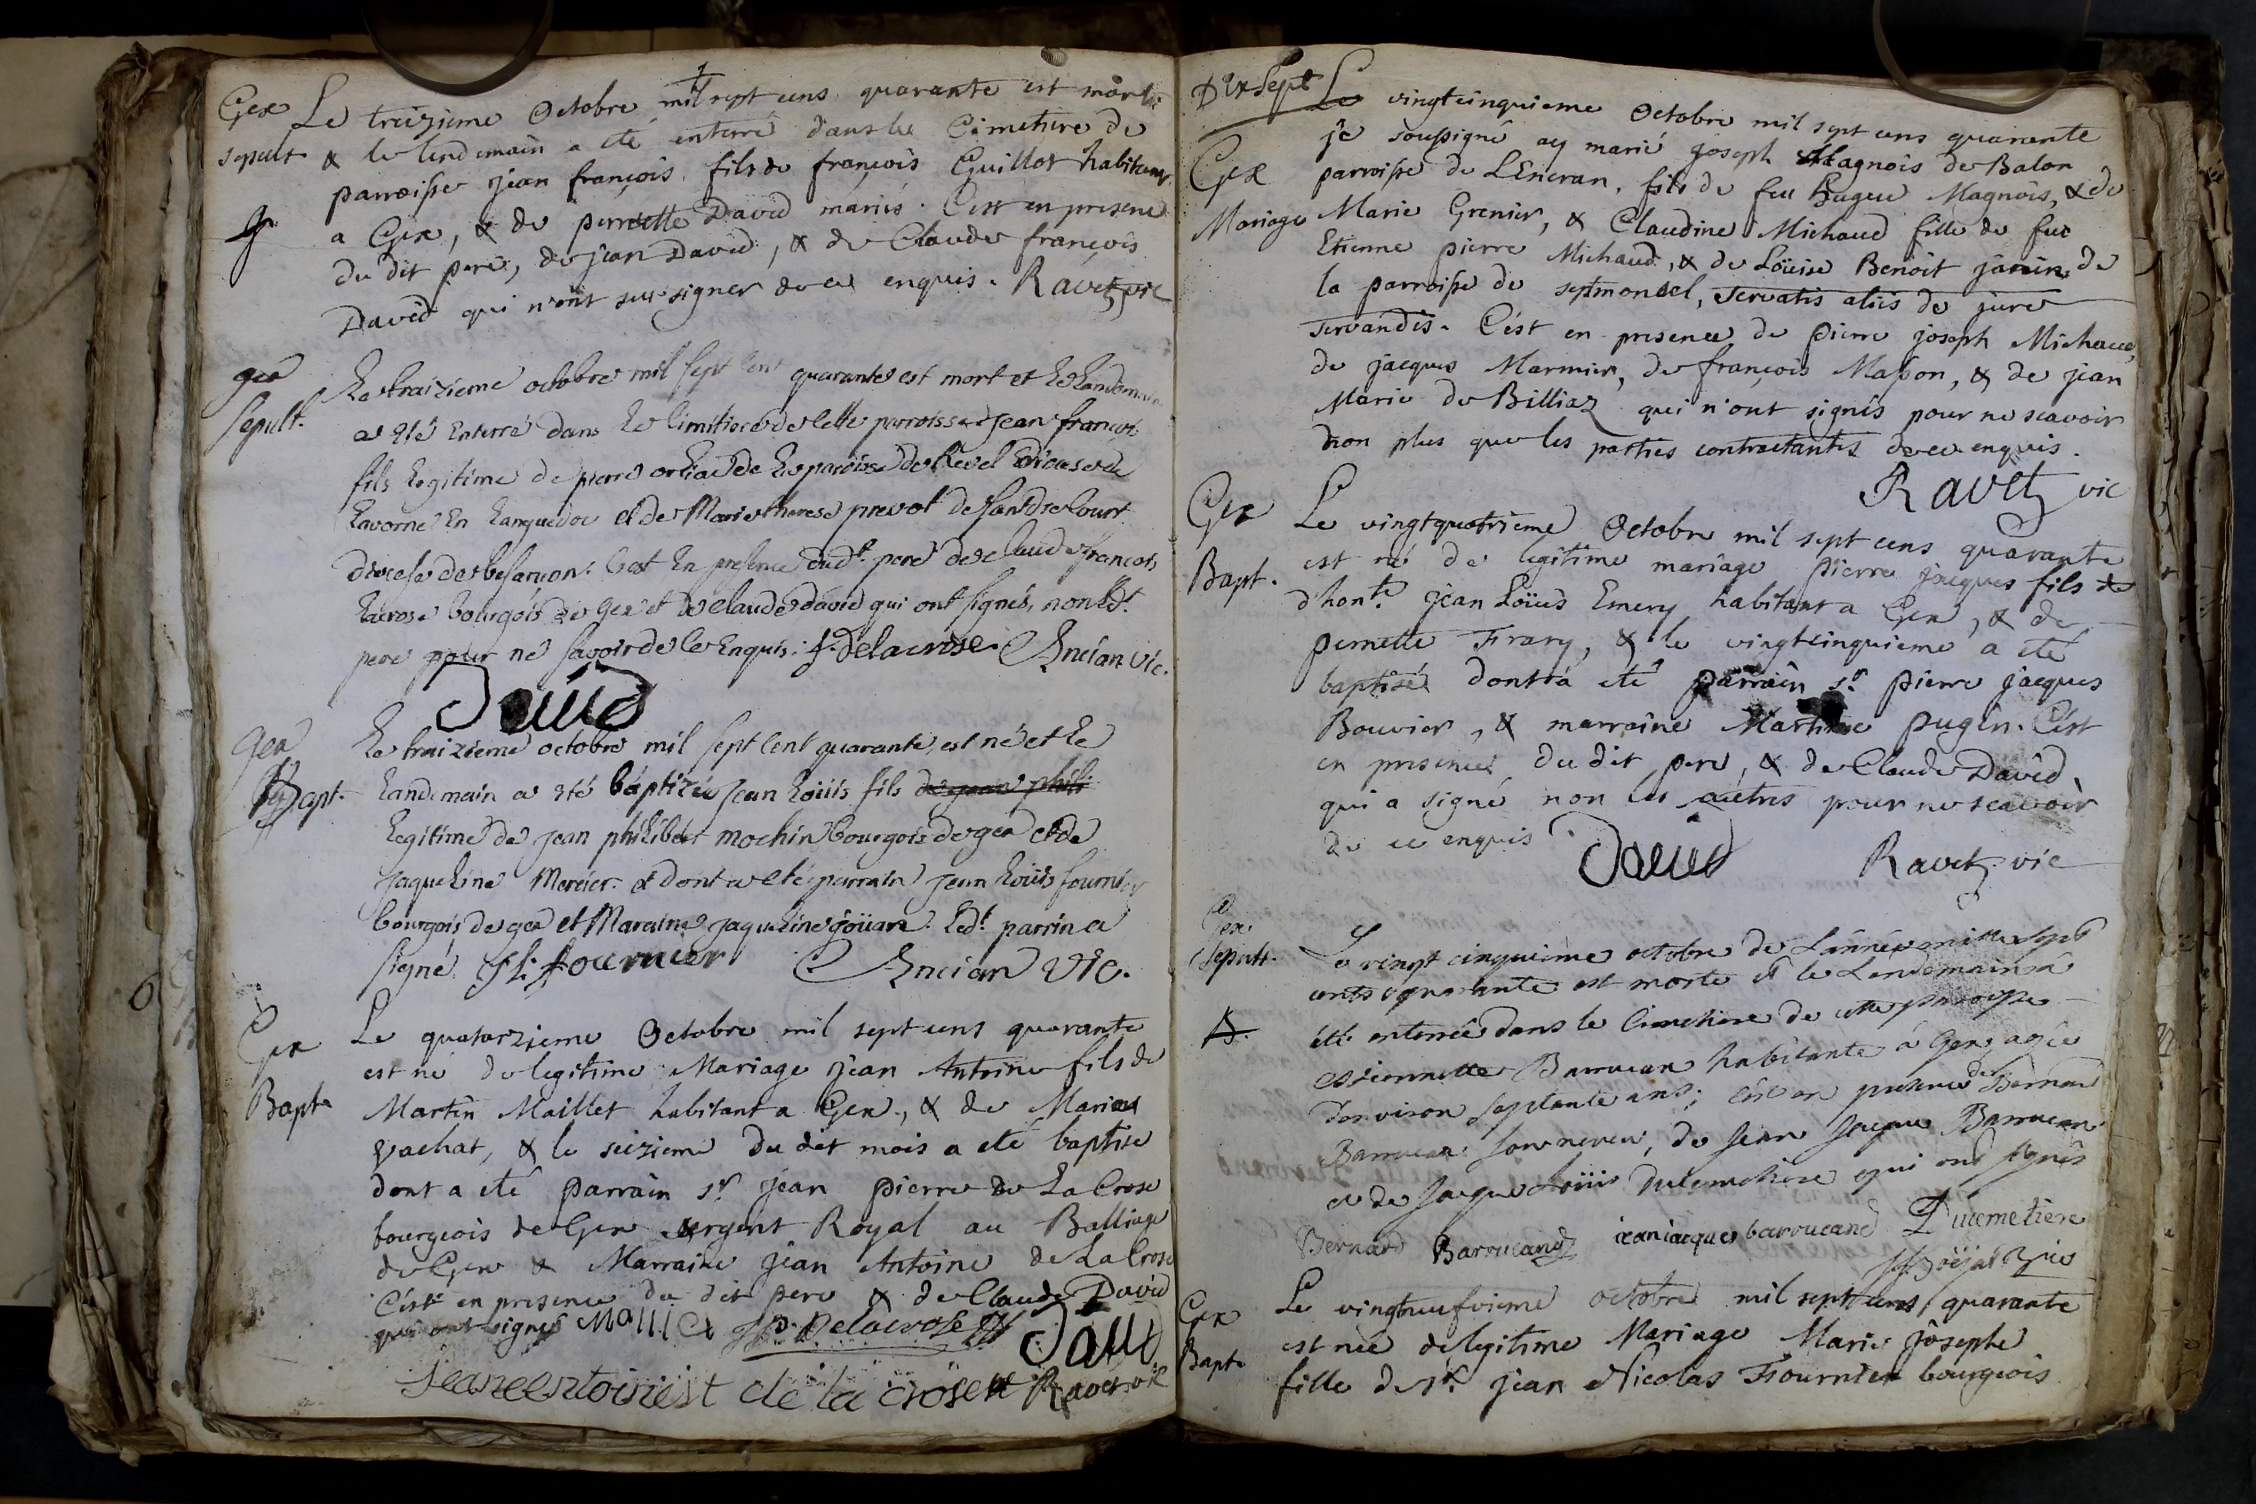 Gex Le treizieme Octobre mil sept cens quarante est mort
sepult & le lendemain a eté enterré dans le Cimetiere de
parroisse jean françois fils de françois Guillot habitant
a Gex, & de pernette David mariés. C'est en presence
du dit pere, de jean David, & de Claude françois
David qui n'ont sceu signer de ce enquis. Ravet vic
gex Le traizieme octobre mil sept cent quarante est mort et le landemain
sepult. a eté Enterré dans le cimitiere de cette parroisse jean francois
fils legitime de pierre de la paroisse de Revel diocese de
Lavorne En Languedoc et de Marie therese prevot de
diocese de besançon. C'est En presence dud.t pere de claude francois
Lacrose bourgois de gex et de claude david qui ont signés, non led.t
pere pour ne savoir de ce Enquis. f. Delacrose. Ancian vic.
David
gex Le traizieme octobre mil sept cent quarante, est né et le
Bapt. landemain a eté baptizé jean Louis fils de jean phili
legitime de jean philibert mochin bourgois de gex et de
jaqueline Mercier et dont a eté parrain jean Louis fournier
bourgois de gex et Maraine jaqueline goüare. Led.t parrin a
signé. fournier Ancian vic.
Gex Le quatorzieme Octobre mil sept cens quarante
est né de legitime Mariage jean Antoine fils de
Bapt. Martin Maillet habitant a Gex, & de Marie
Vachat, & le seizieme du dit mois a eté baptise
dont a eté parrain s.r jean pierre De La Crose
bourgeois de Gex sergent Royal au Balliage
de Gex & Marraine jean Antoine de La Crose
C'est en presence du dit pere & de Claude David
qui ont signés Mallet Delacrose David
jeaneentoinist de la crose Ravet vic
Dix Sept Le vingtcinquieme Octobre mil sept cens quarante
je soussigné ay marié joseph Magnois de Balon
Gex parroisse de LEncran, fils de feu Hugue Magnois, & de
Mariage Marie Grenier, & Claudine Michaud fille de feu
Etienne pierre Michaud, & de Loüise Benoit de
la parroisse de septmoncel, servatis aliis de jure
servandis. C'est en presence de pierre joseph Michaud,
de jacques Marmier, de françois Masson, & de jean
Marie de Billiaz qui n'ont signés pour ne scavoir
non plus que les parties contractantes de ce enquis.
Ravet vic
Gex Le vingtquatrieme Octobre mil sept cens quarante
Bapt. est né de legitime mariage pierre jacques fils de
d'hon.te jean Loüis Emery habitant a Gex, & de
pernette Frary, & le vingtcinquieme a eté
baptisé dont a eté parrain s.r pierre jacques
Bouvier, & marraine Martine pugin. C'est
en presence du dit pere, & de Claude David,
qui a signé non les autres pour ne scavoir
de ce enquis David Ravet vic
Gex Le vingt cinquième octobre de L'année mille sept
Sepult. cents quarante est morte & le Lendemain à
été enterrée dans le Cimetiere de cette paroisse
estiennette Barrucan habitante à Gex, agée
d'environ septante ans; C'est en presence de Bernard
Barrucan son neveu, de Jean Jaque Barrucan
et de Jaque Loüis Ducemetiere qui ont signés
Bernard Barrucand ieaniacques barrucand Ducemetiere
vic
Gex Le vingtneufvieme octobre mil sept cens, quarante
Bapt. est née de legitime Mariage Marie josephe
fille de s.r jean Nicolas Fournier bourgeois